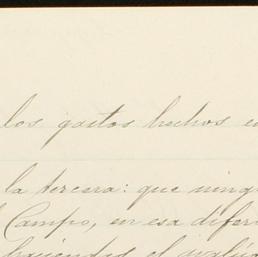 los gastos hechos en
la tercera: que ning
Campo, en esa difer
haciendo el